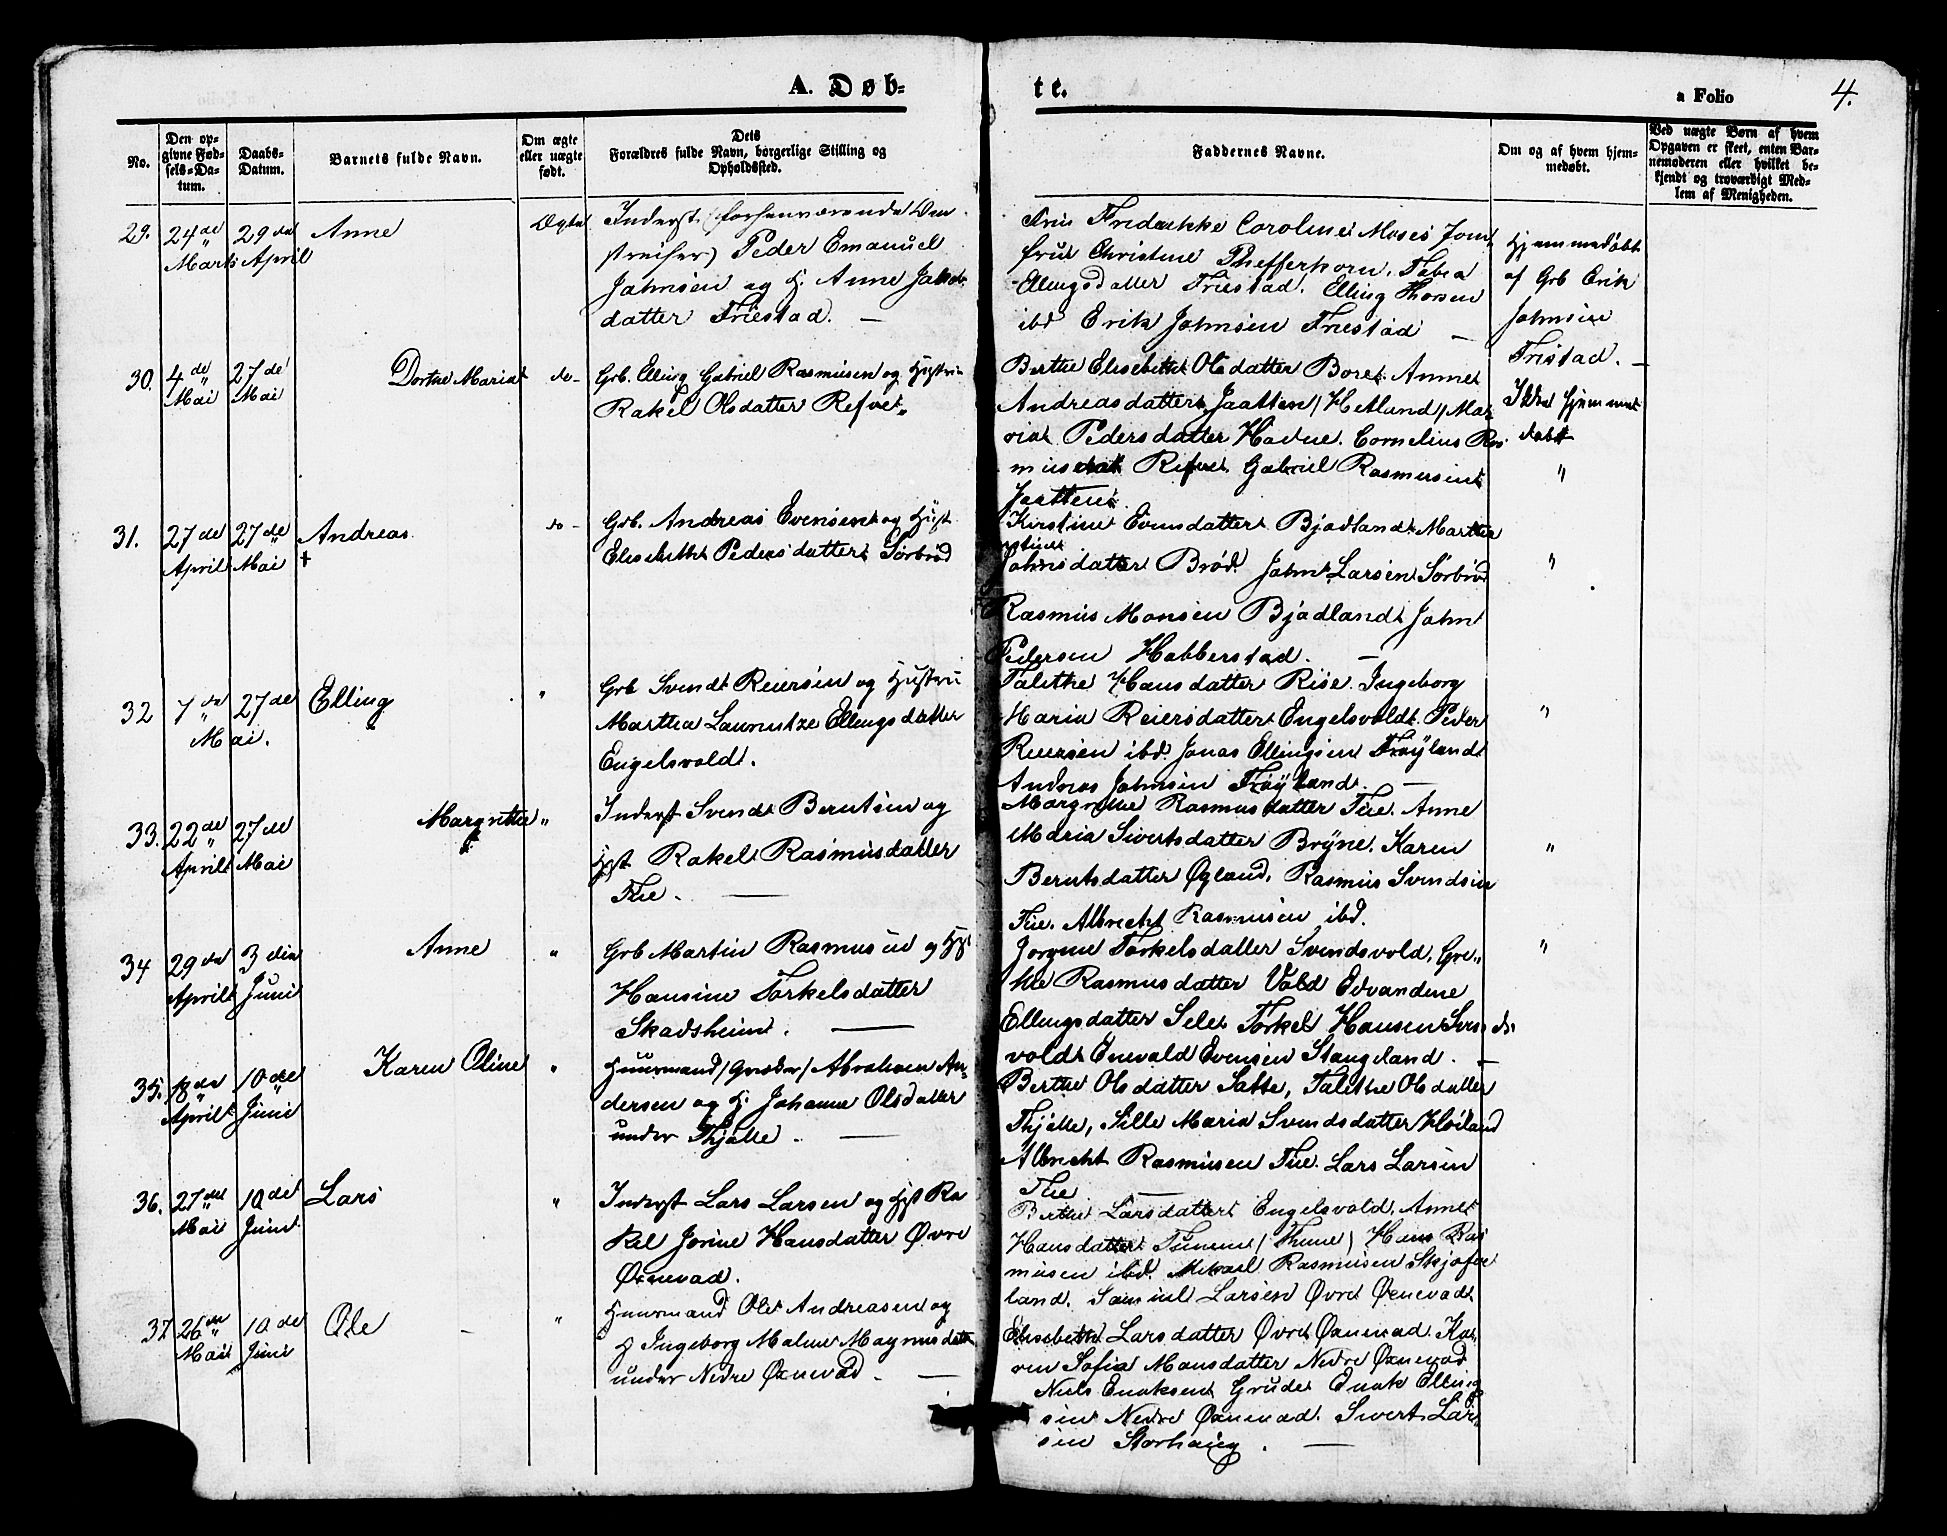 A. Døb=
te.
a Folio
4.
No.
Den op-
givne Fød-
sels=Da-
tum.
Daabs-
Datum.
Barnets fulde Navn.
Om ægte
eller uægte
født.
Dets
Forældres fulde Navn, borgerlige Stilling og
Opholdssted.
Faddernes Navne.
Om og af hvem hjem-
medøbt.
Ved uægte Børn af hvem
Opgaven er skeet, enten Bar-
nemoderen eller hvilket be-
kjendt og troværdigt Med-
lem af Menigheden.
29.
24de
Marts
29de
April
Anne
Ægte
Inderst (forhenværende Om
streifer) Peder Emanuel
Johnsen og H. Anne Jakobs
datter Friestad. —
Frederikke Caroline Moses Jom
fru Christine Pfefferkorn. Tabea
Ellingsdatter Friestad. Elling Thorsen
ibd Erik Johnsen Friestad —
Hjemmedøbt
af Grb Erik
Johnsen
Fristad. —
30.
4de
Mai
27de
Mai
Dorthe Maria
do-
Grb. Elling Gabriel Rasmusen og Hustru
Rakel Olsdatter Refve
Berthe Elisebeth Olsdatter Bore. Anne
Andreasdatter Jaatten/Hetland/Ma-
ria Pedersdatter Hadne. Cornelius Ras
musen Refve Gabriel Rasmusen
Jaatten
Ikke Hjemme
døbt
"
31.
27de
April
27de
Mai
Andreas
+
do-
Grb. Andreas Evensen og Hust
Elisebeth Pedersdatter Sørbrød
Kirstine Evensdatter Bjodland Marthe
Johnsdatter Brød. John Larsen Sørbrød
Rasmus Monsen Bjodland John
Pedersen Hobberstad. —
"
32
7de
Mai.
27de
Elling
"
Grb Svend Reiersen og Hustru
Marthea Lauritze Ellingsdatter
Engelsvold.
Talethe Hansdatter Rise. Ingeborg
Maria Reiersdatter Engelsvold. Peder
Reiersen ibd. Jonas Ellingsen Frøyland
Andreas Johnsen Frøyland. —
"
33.
22de
April
27de
Mai
Margrethe
"
Inderst Svend Berntsen og
Hst Rakel Rasmusdatter
Tue. —
Margrethe Rasmusdatter Tue. Anne
Maria Sivertsdatter Bryne. Karen
Berntsdatter Øgland. Rasmus Svendsen
Tue. Albrecht Rasmusen ibd.
"
34
29de
April
3die
Juni
Anne
"
Grb Martin Rasmusen og Hst
Hansine Torkelsdatter
Skadsheim. —
Jorgine Torkelsdatter Svendsvold. Gre-
the Rasmusdatter Vold Edvardine
Ellingsdatter Sele Torkel Hansen Svends
vold Enevald Evensen Stangeland. —
"
35.
18de
April
10de
Juni
Karen Oline
"
Huusmand/Græder/Abraham An-
dersen og H. Johanne Olsdatter
under Thjøtte. —
Berthe Olsdatter Sætte, Talethe Olsdatter
Thjøtte, Sille Maria Svendsdatter Høiland
Albrecht Rasmusen Tue. Lars Larsen
Tue —
36.
27de
Mai
10de
Juni
Lars
"
Inderst Lars Larsen og Hst Ra
kel Jorine Hansdatter Øvre
Øxnevad.
Berthe Larsdatter Engelsvold. Anne
Hansdatter Tunem/Thime/ Hans Ras
musen ibd. Mikael Rasmusen Skjæfve
land. Samuel Larsen Øvre Øxnevad.
37
26de
Mai
10de
Juni
Ole
—
"
Huusmand Ole Andreasen og
H Ingeborg Malene Magnusdatt
under Nedre Øxnevad. —
Elisebeth Larsdatter Øvre Øxnevad. Ka-
ren Sofia Monsdatter Nedre Øxnevad
Niels Enoksen Grude Enok Elling
sen Nedre Øxnevad. Sivert Lar-
sen Storhaug. —